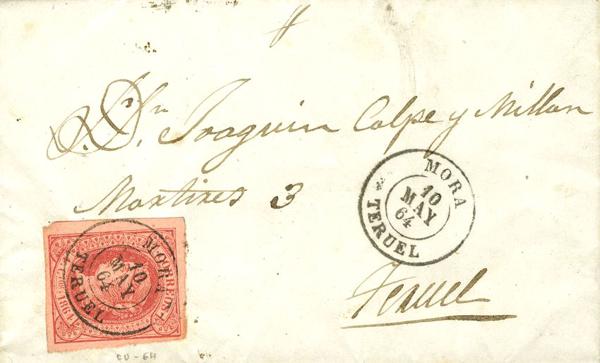 S. Dn Joaquin Calpe y Millan
Martires 3
MORA
10
MAY
64
TERUEL
Teruel
MORA
10
MAY
64
TERUEL
CU-64